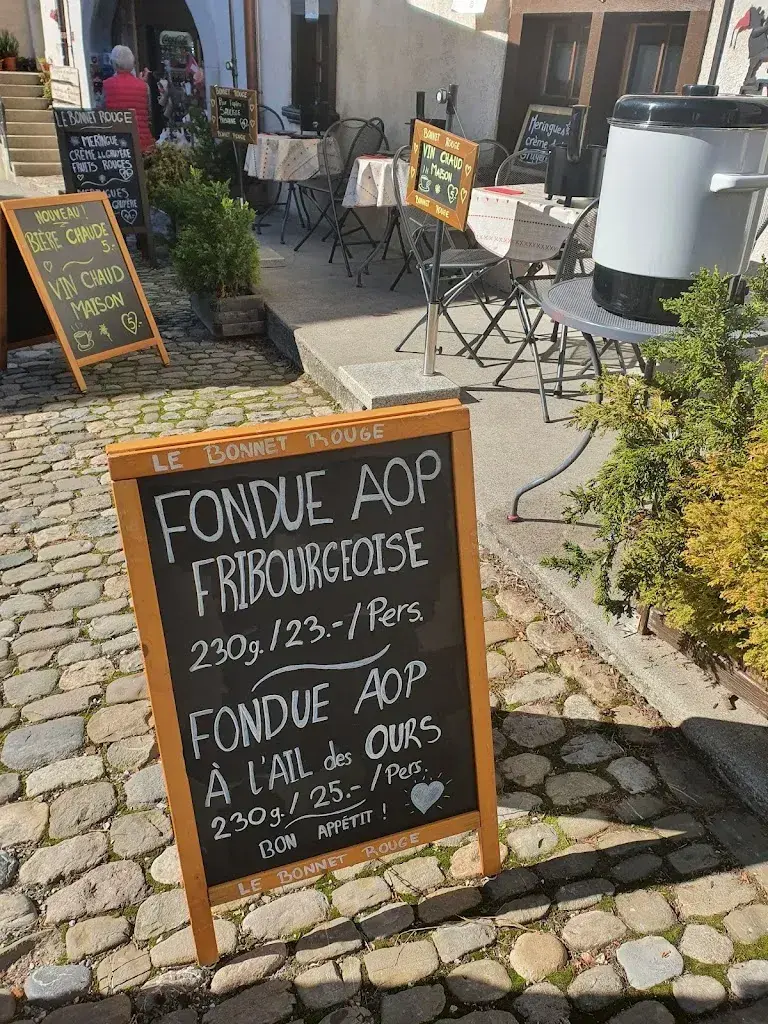 LE BONNET ROUGE
MERINGUE
CRÈME de GRUYÈRE
FRUITS ROUGES
NOUVEAU!
BIÈRE CHAUDE
5.-
VIN CHAUD
MAISON
5.-
BONNET ROUGE
BONNET ROUGE
VIN CHAUD
MAISON
BONNET ROUGE
Meringues
crème
LE BONNET ROUGE
FONDUE AOP
FRIBOURGEOISE
230g./23.-/Pers.
FONDUE AOP
À l'AIL des OURS
230g./25.-/Pers.
BON APPÉTIT !
LE BONNET ROUGE